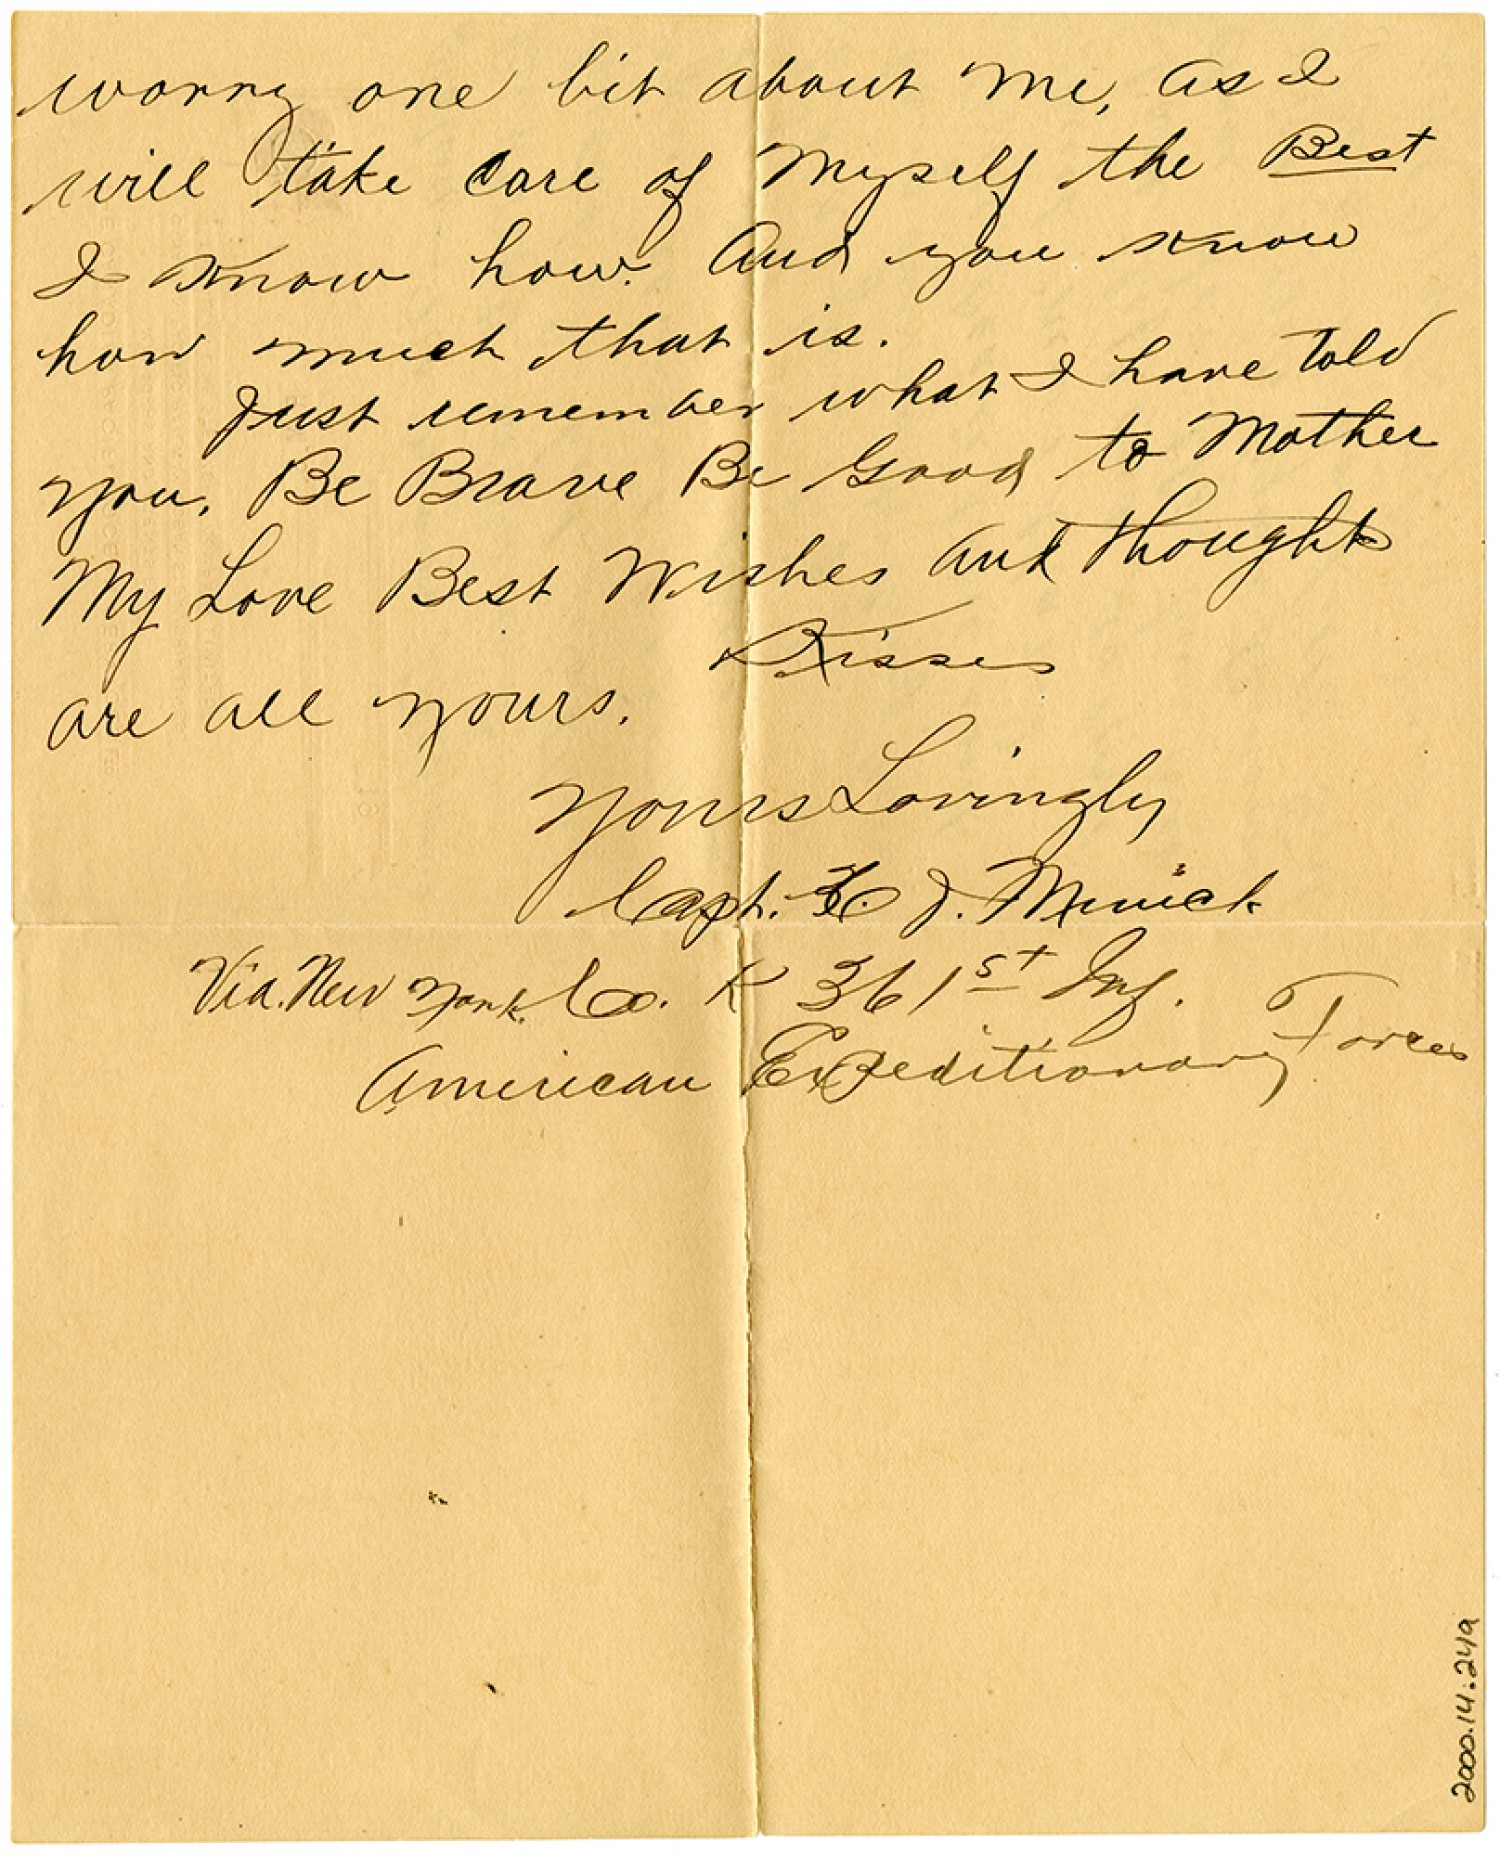 worry one bit about me, as I
will take care of Myself the Best
I know how. And you know
how much that is.
Just remember what I have told
you. Be Brave Be Good to Mother
My Love Best Wishes and thoughts
Kisses
are all yours.
Yours Lovingly
Capt. J. Minick
Via. New York. Co. K 361st Inf.
American Expeditionary Forces
2000.14.249